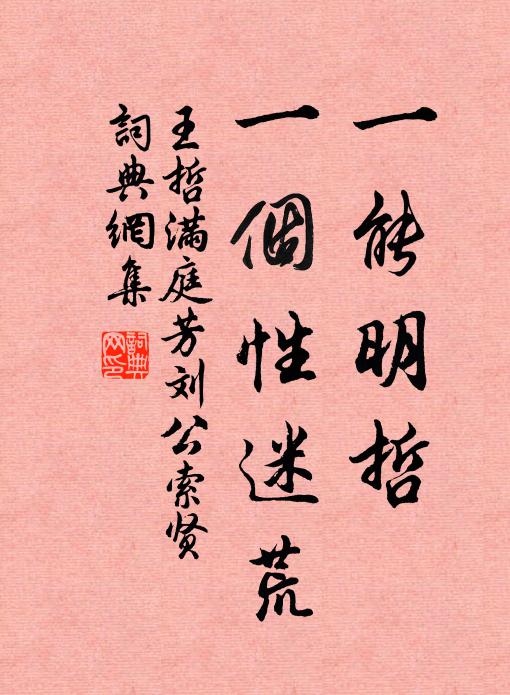 一能明哲
一個性迷荒
王哲满庭芳刘公索贤
詞典網集
詞典網印